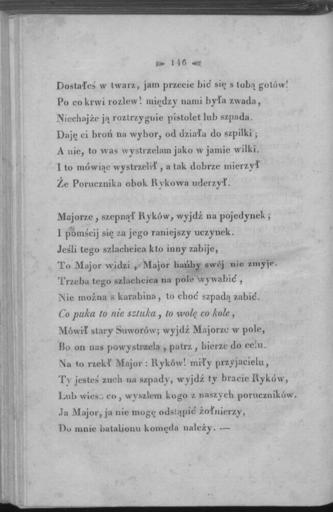 146
Dostałeś w twarz, jam przecie bić się s tobą gotów!
Po co krwi rozlew! między nami była zwada,
Niechajże ją roztrzygnie pistolet lub szpada.
Daję ci broń na wybor, od działa do szpilki;
A nie, to was wystrzelam jako w jamie wilki.
I to mówiąc wystrzelił, a tak dobrze mierzył
Że Porucznika obok Rykowa uderzył.
Majorze, szepnął Ryków, wyjdź na pojedynek;
I pomścij się za jego raniejszy uczynek.
Jeśli tego szlachcica kto inny zabije,
To Major widzi, Major hańby swéj nie zmyje.
Trzeba tego szlachcica na pole wywabić,
Nie można s karabina, to choć szpadą zabić.
Co puka to nie sztuka, to wolę co kole,
Mówił stary Suworów; wyjdź Majorze w pole,
Bo on nas powystrzela, patrz, bierze do celu.
Na to rzekł Major: Ryków! miły przyjacielu,
Ty jesteś zuch na szpady, wyjdź ty bracie Ryków,
Lub wiesz co, wyszlem kogo z naszych poruczników.
Ja Major, ja nie mogę odstąpić żołnierzy,
Do mnie batalionu komęda należy. —